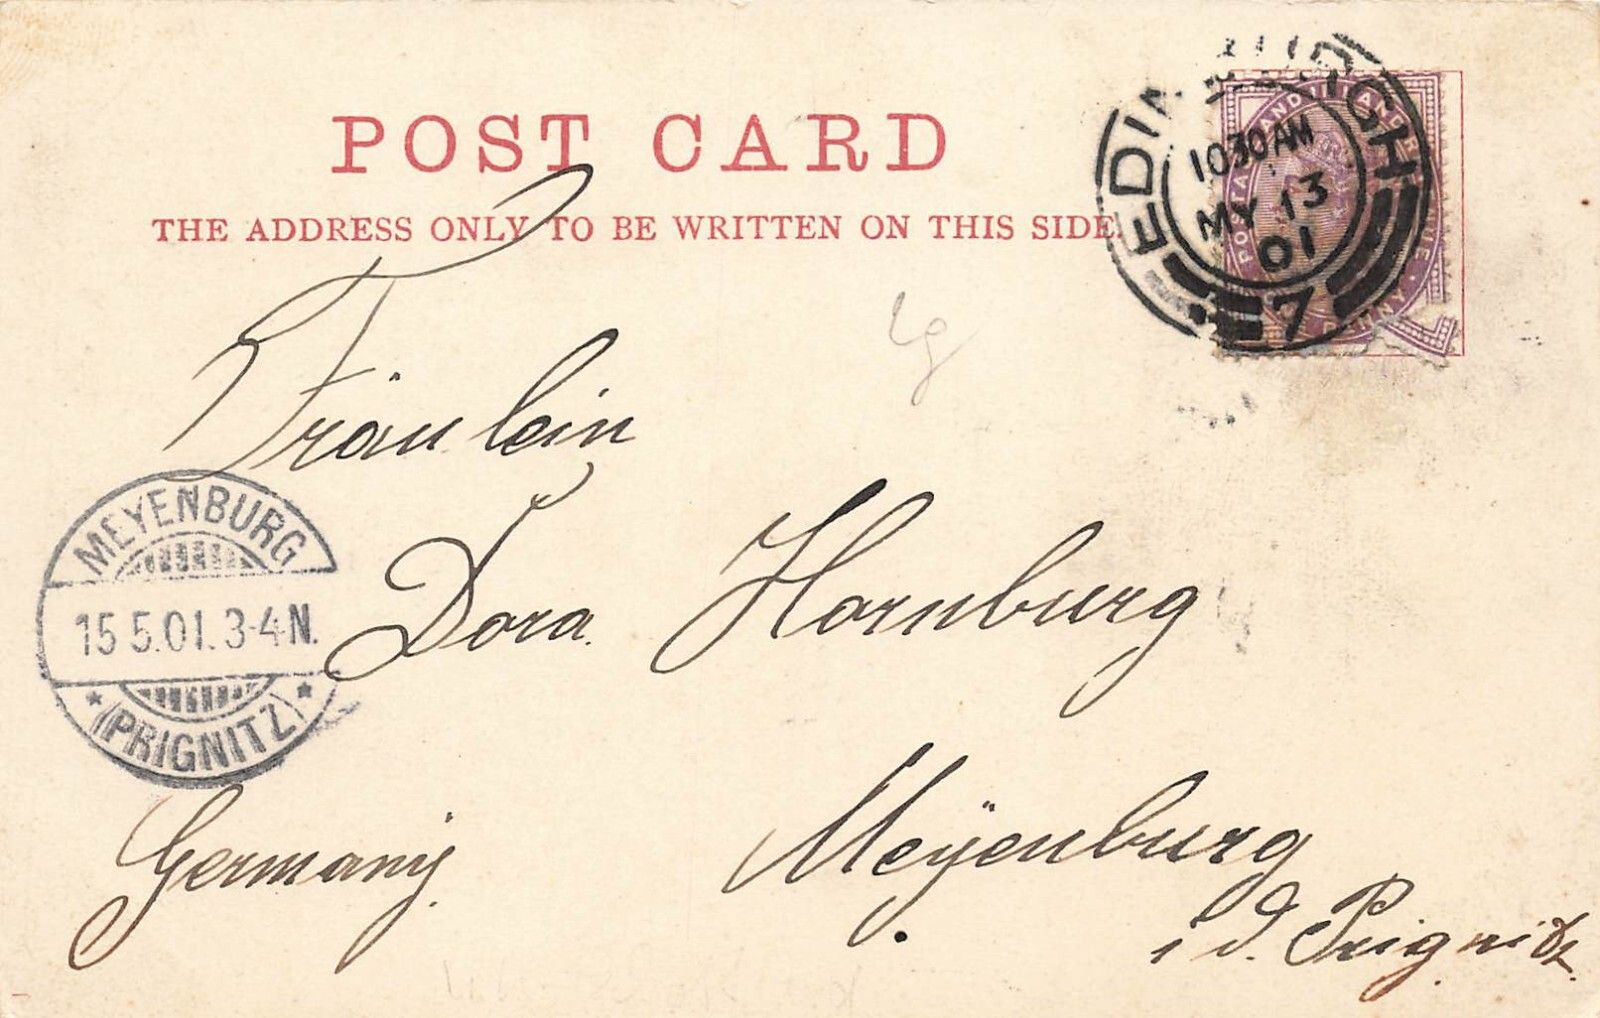 POST CARD
THE ADDRESS ONLY TO BE WRITTEN ON THIS SIDE.
EDINBURGH
10 30 AM
MY 13
01
7
Fräulein
Dora Hornburg
MEYENBURG
15 5.01. 3-4 N.
* (PRIGNITZ) *
Germany.
Meÿenburg
i d. Prignitz.